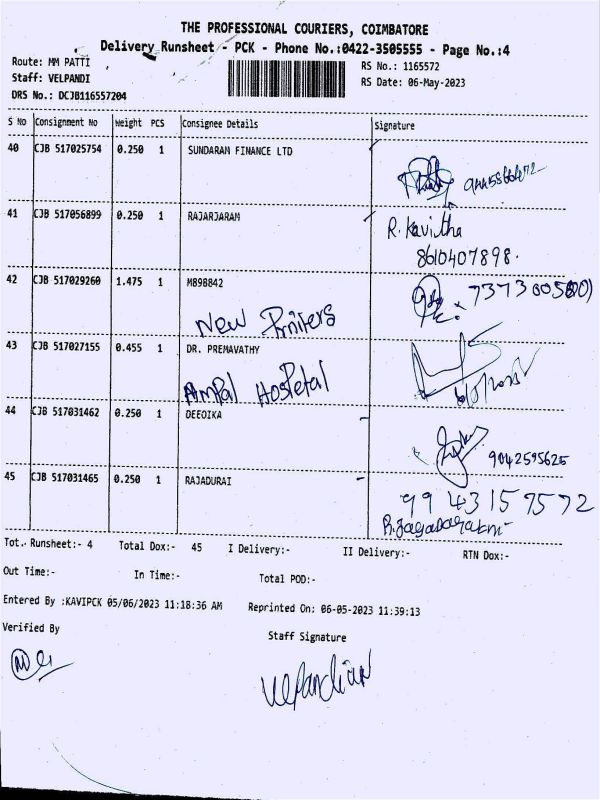 THE PROFESSIONAL COURIERS, COIMBATORE
Delivery Runsheet - PCK - Phone No.:0422-3505555 - Page No.:4
Route: MM PATTI
RS No.: 1165572
Staff: VELPANDI
RS Date: 06-May-2023
DRS No.: DCJB116557204
S No Consignment No Weight PCS Consignee Details Signature
40 CJB 517025754 0.250 1 SUNDARAM FINANCE LTD
41 CJB 517056899 0.250 1 RAJARJARAM
R. Kavitha
8610407898.
42 CJB 517029260 1.475 1 M898842
New Printers
43 CJB 517027155 0.455 1 DR. PREMAVATHY
Ampal Hospetal
44 CJB 517031462 0.250 1 DEEOIKA
9042595625
45 CJB 517031465 0.250 1 RAJADURAI
9943157572
Tot. Runsheet:- 4 Total Dox:- 45 I Delivery:- II Delivery:- RTN Dox:-
Out Time:- In Time:- Total POD:-
Entered By :KAVIPCK 05/06/2023 11:18:36 AM Reprinted On: 06-05-2023 11:39:13
Verified By Staff Signature
Velpandian